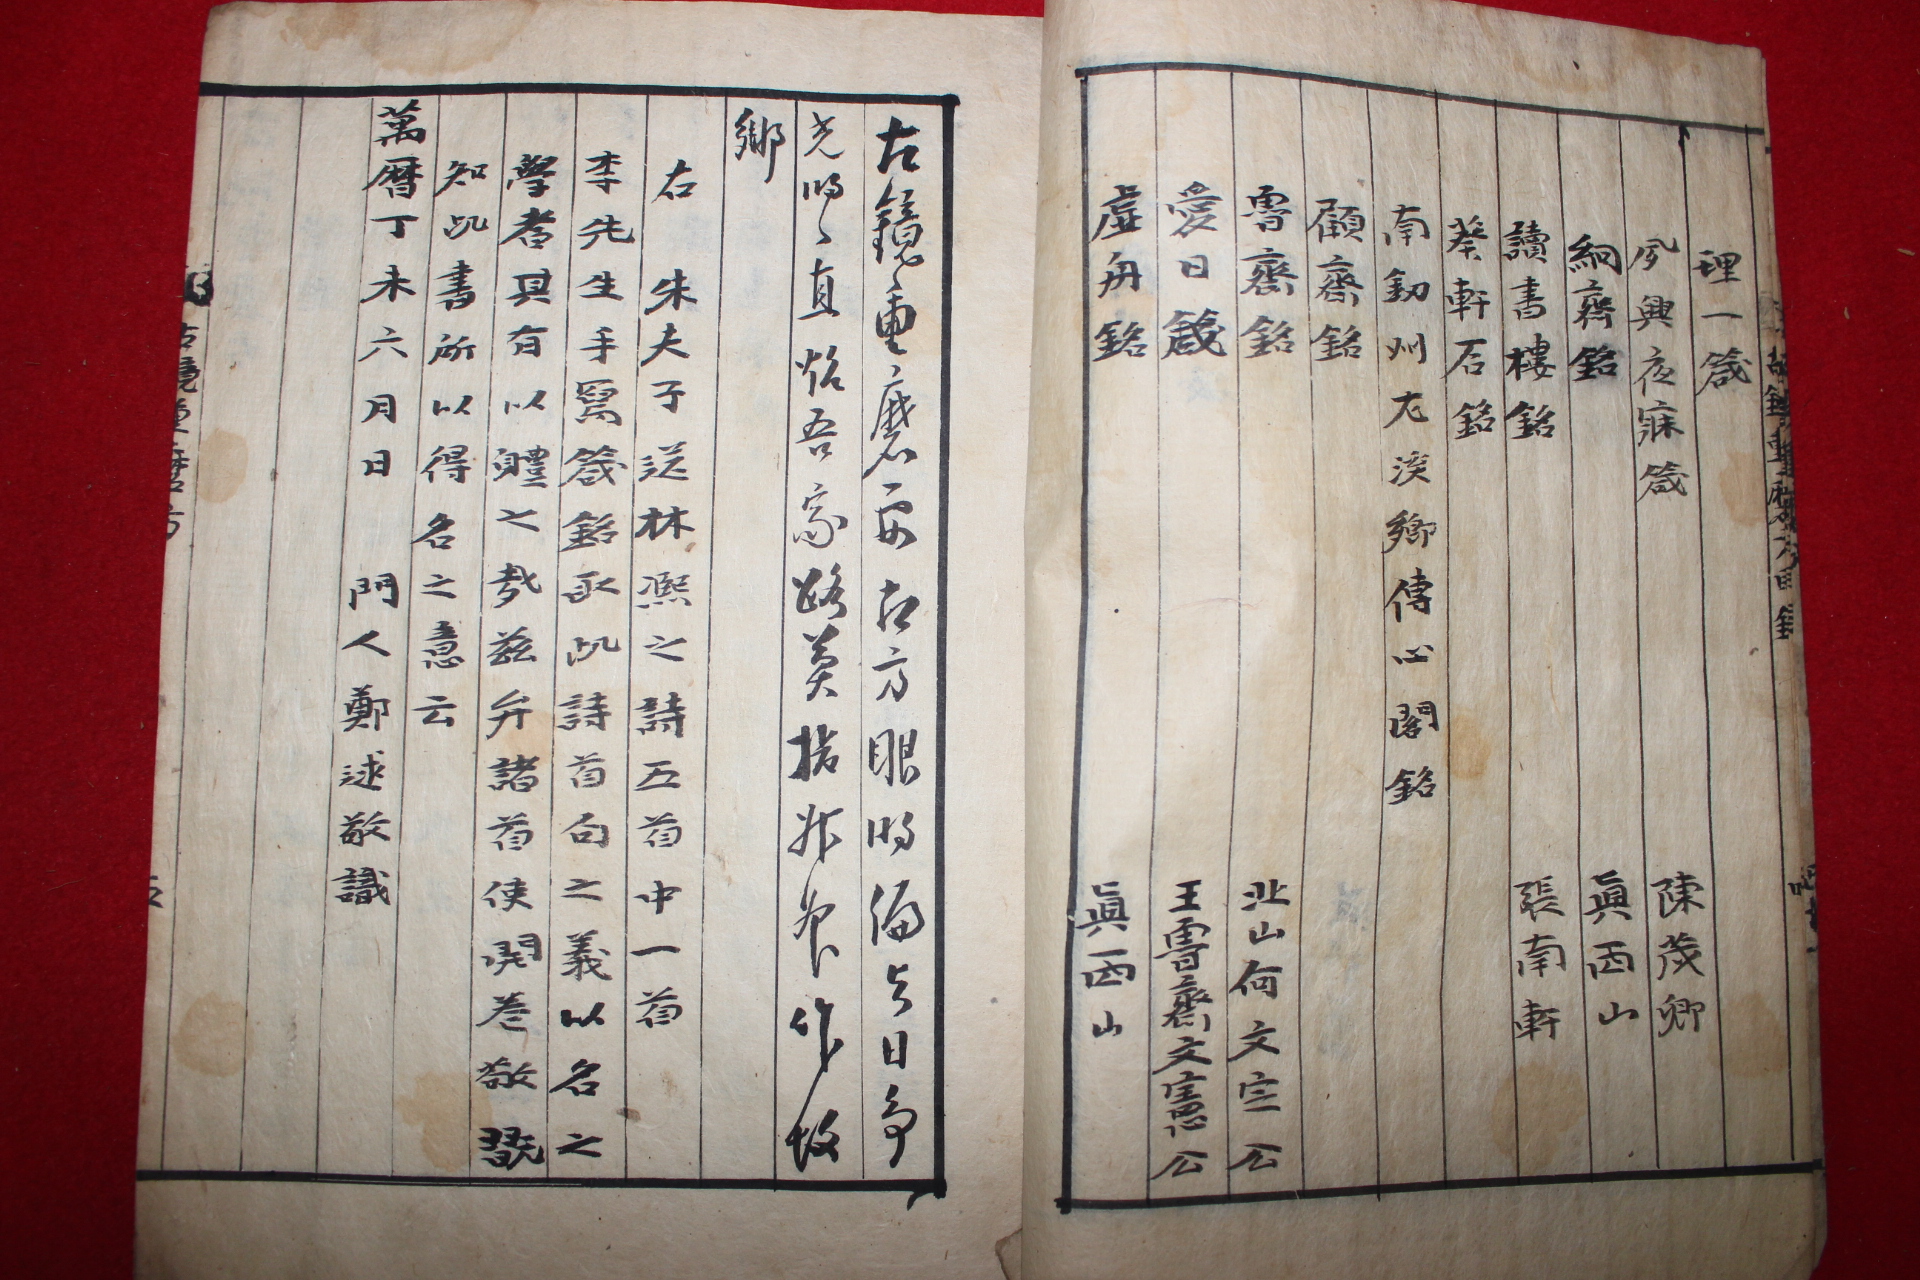 理一箴
夙興夜寐箴 陳茂卿
絅齋銘 眞西山
讀書樓銘 張南軒
葵軒石銘
南劍州尤溪鄉傳心閣銘
顧齋銘
魯齋銘 北山何文定公
愛日箴 王魯齋文憲公
虛舟銘 眞西山
古鏡重磨要古方眼明偏與日爭
光明明直照吾家路莫指幷州作故
鄉
右朱夫子送林熙之詩五首中一首
李先生手寫箴銘取此詩首句之義以名之
學者具有以體之哉玆弁諸首使開卷敬翫
知此書所以得名之意云
萬曆丁未六月日 門人鄭逑敬識
古鏡重磨方